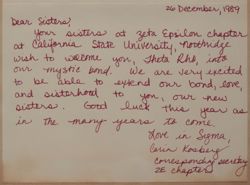 26 December, 1989
Dear Sisters!
Your sisters at Zeta Epsilon chapter
at California State University, Northridge
wish to welcome you, Theta Rho, into
our mystic bond. We are very excited
to be able to extend our bond, love,
and sisterhood to you, our new
sisters. Good luck this year as
in the many years to come
Love in Sigma,
Kosberg
Corresponding secretary
ZE chapter